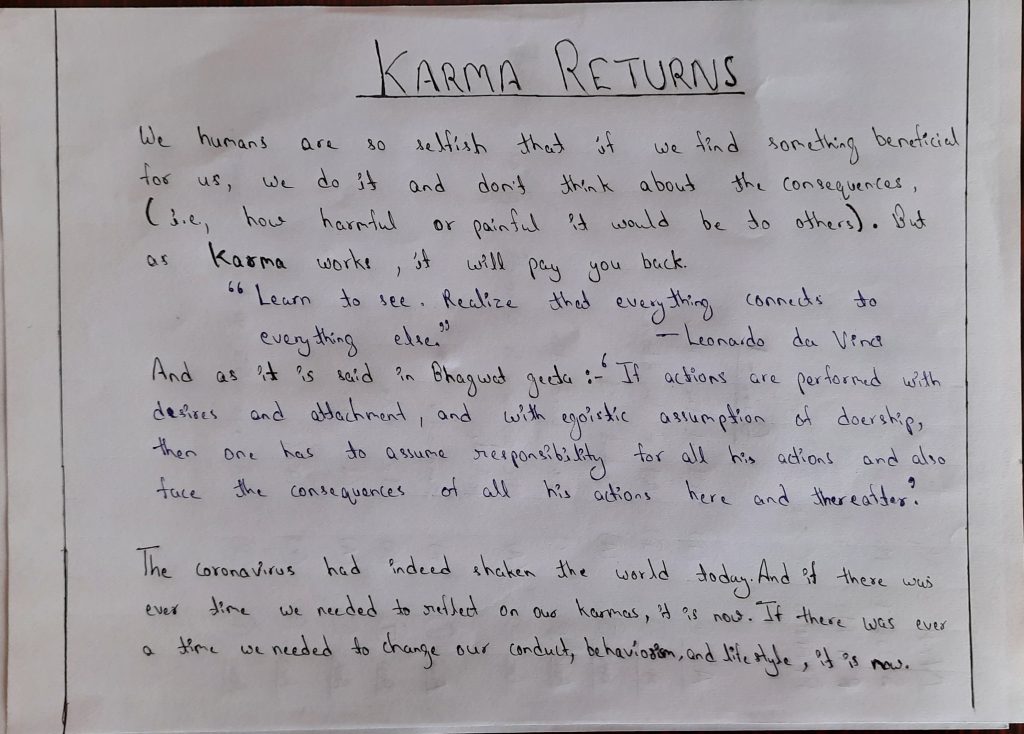 KARMA RETURNS
We humans are so selfish that if we find something beneficial
for us, we do it and don't think about the consequences,
(i.e, how harmful or painful it would be to others). But
as Karma works, it will pay you back.
“Learn to see. Realize that everything connects to
everything else.” – Leonardo da Vinci
And as it is said in Bhagwat geeta :- ‘If actions are performed with
desires and attachment, and with egoistic assumption of doership,
then one has to assume responsibility for all his actions and also
face the consequences of all his actions here and thereafter.’
The coronavirus had indeed shaken the world today. And if there was
ever time we needed to reflect on our Karmas, it is now. If there was ever
a time we needed to change our conduct, and lifestyle, it is now.